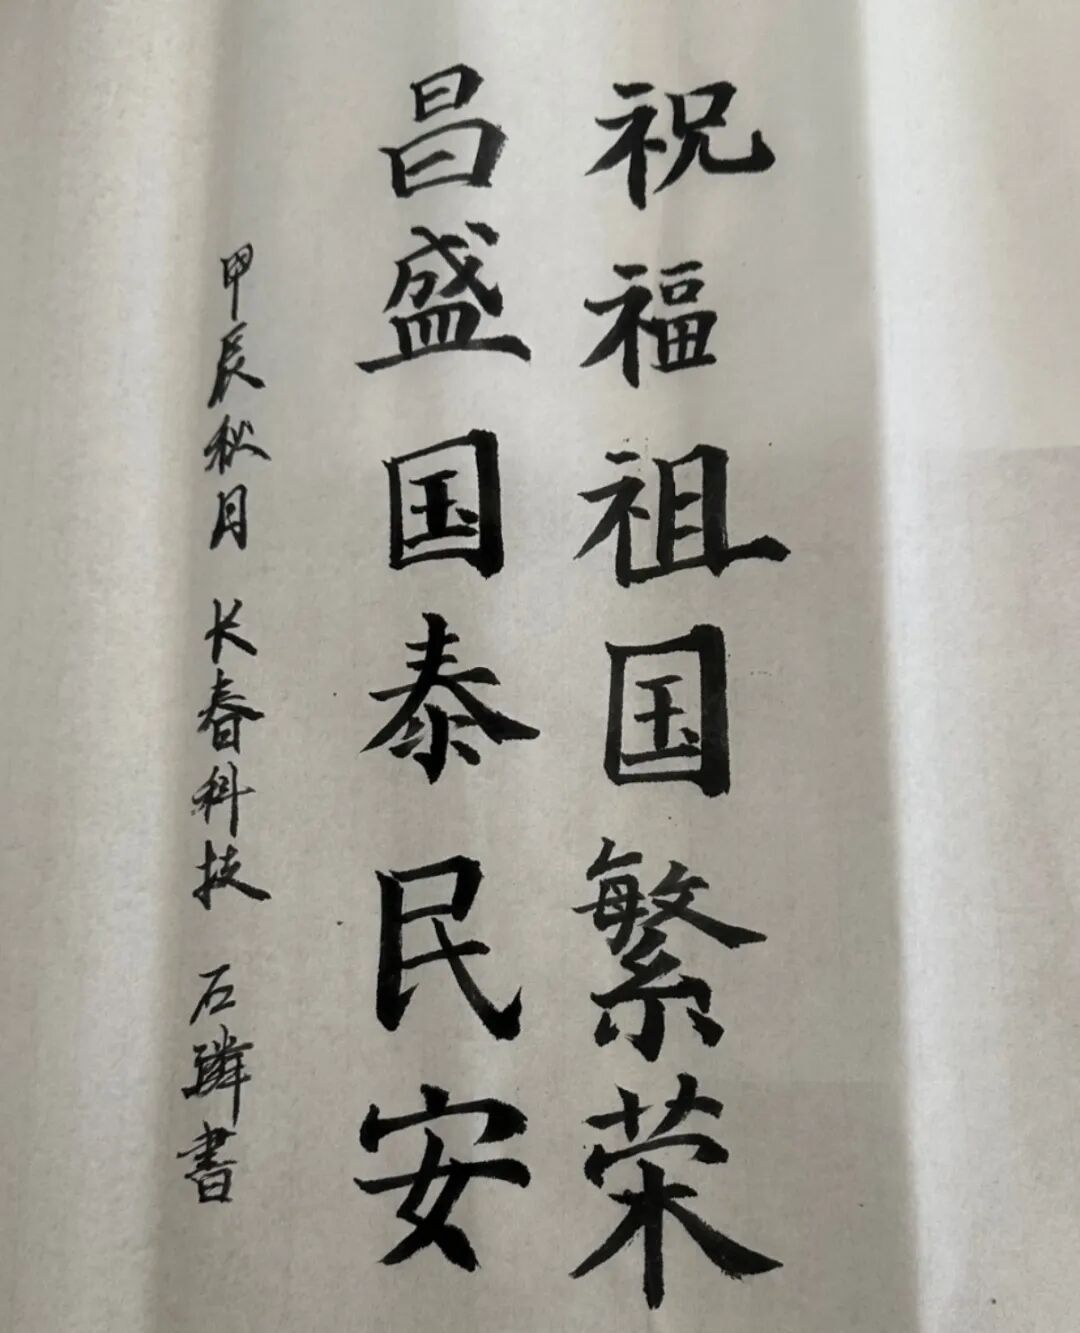 祝福祖国繁荣
昌盛国泰民安
甲辰秋月 长春科技 石 書